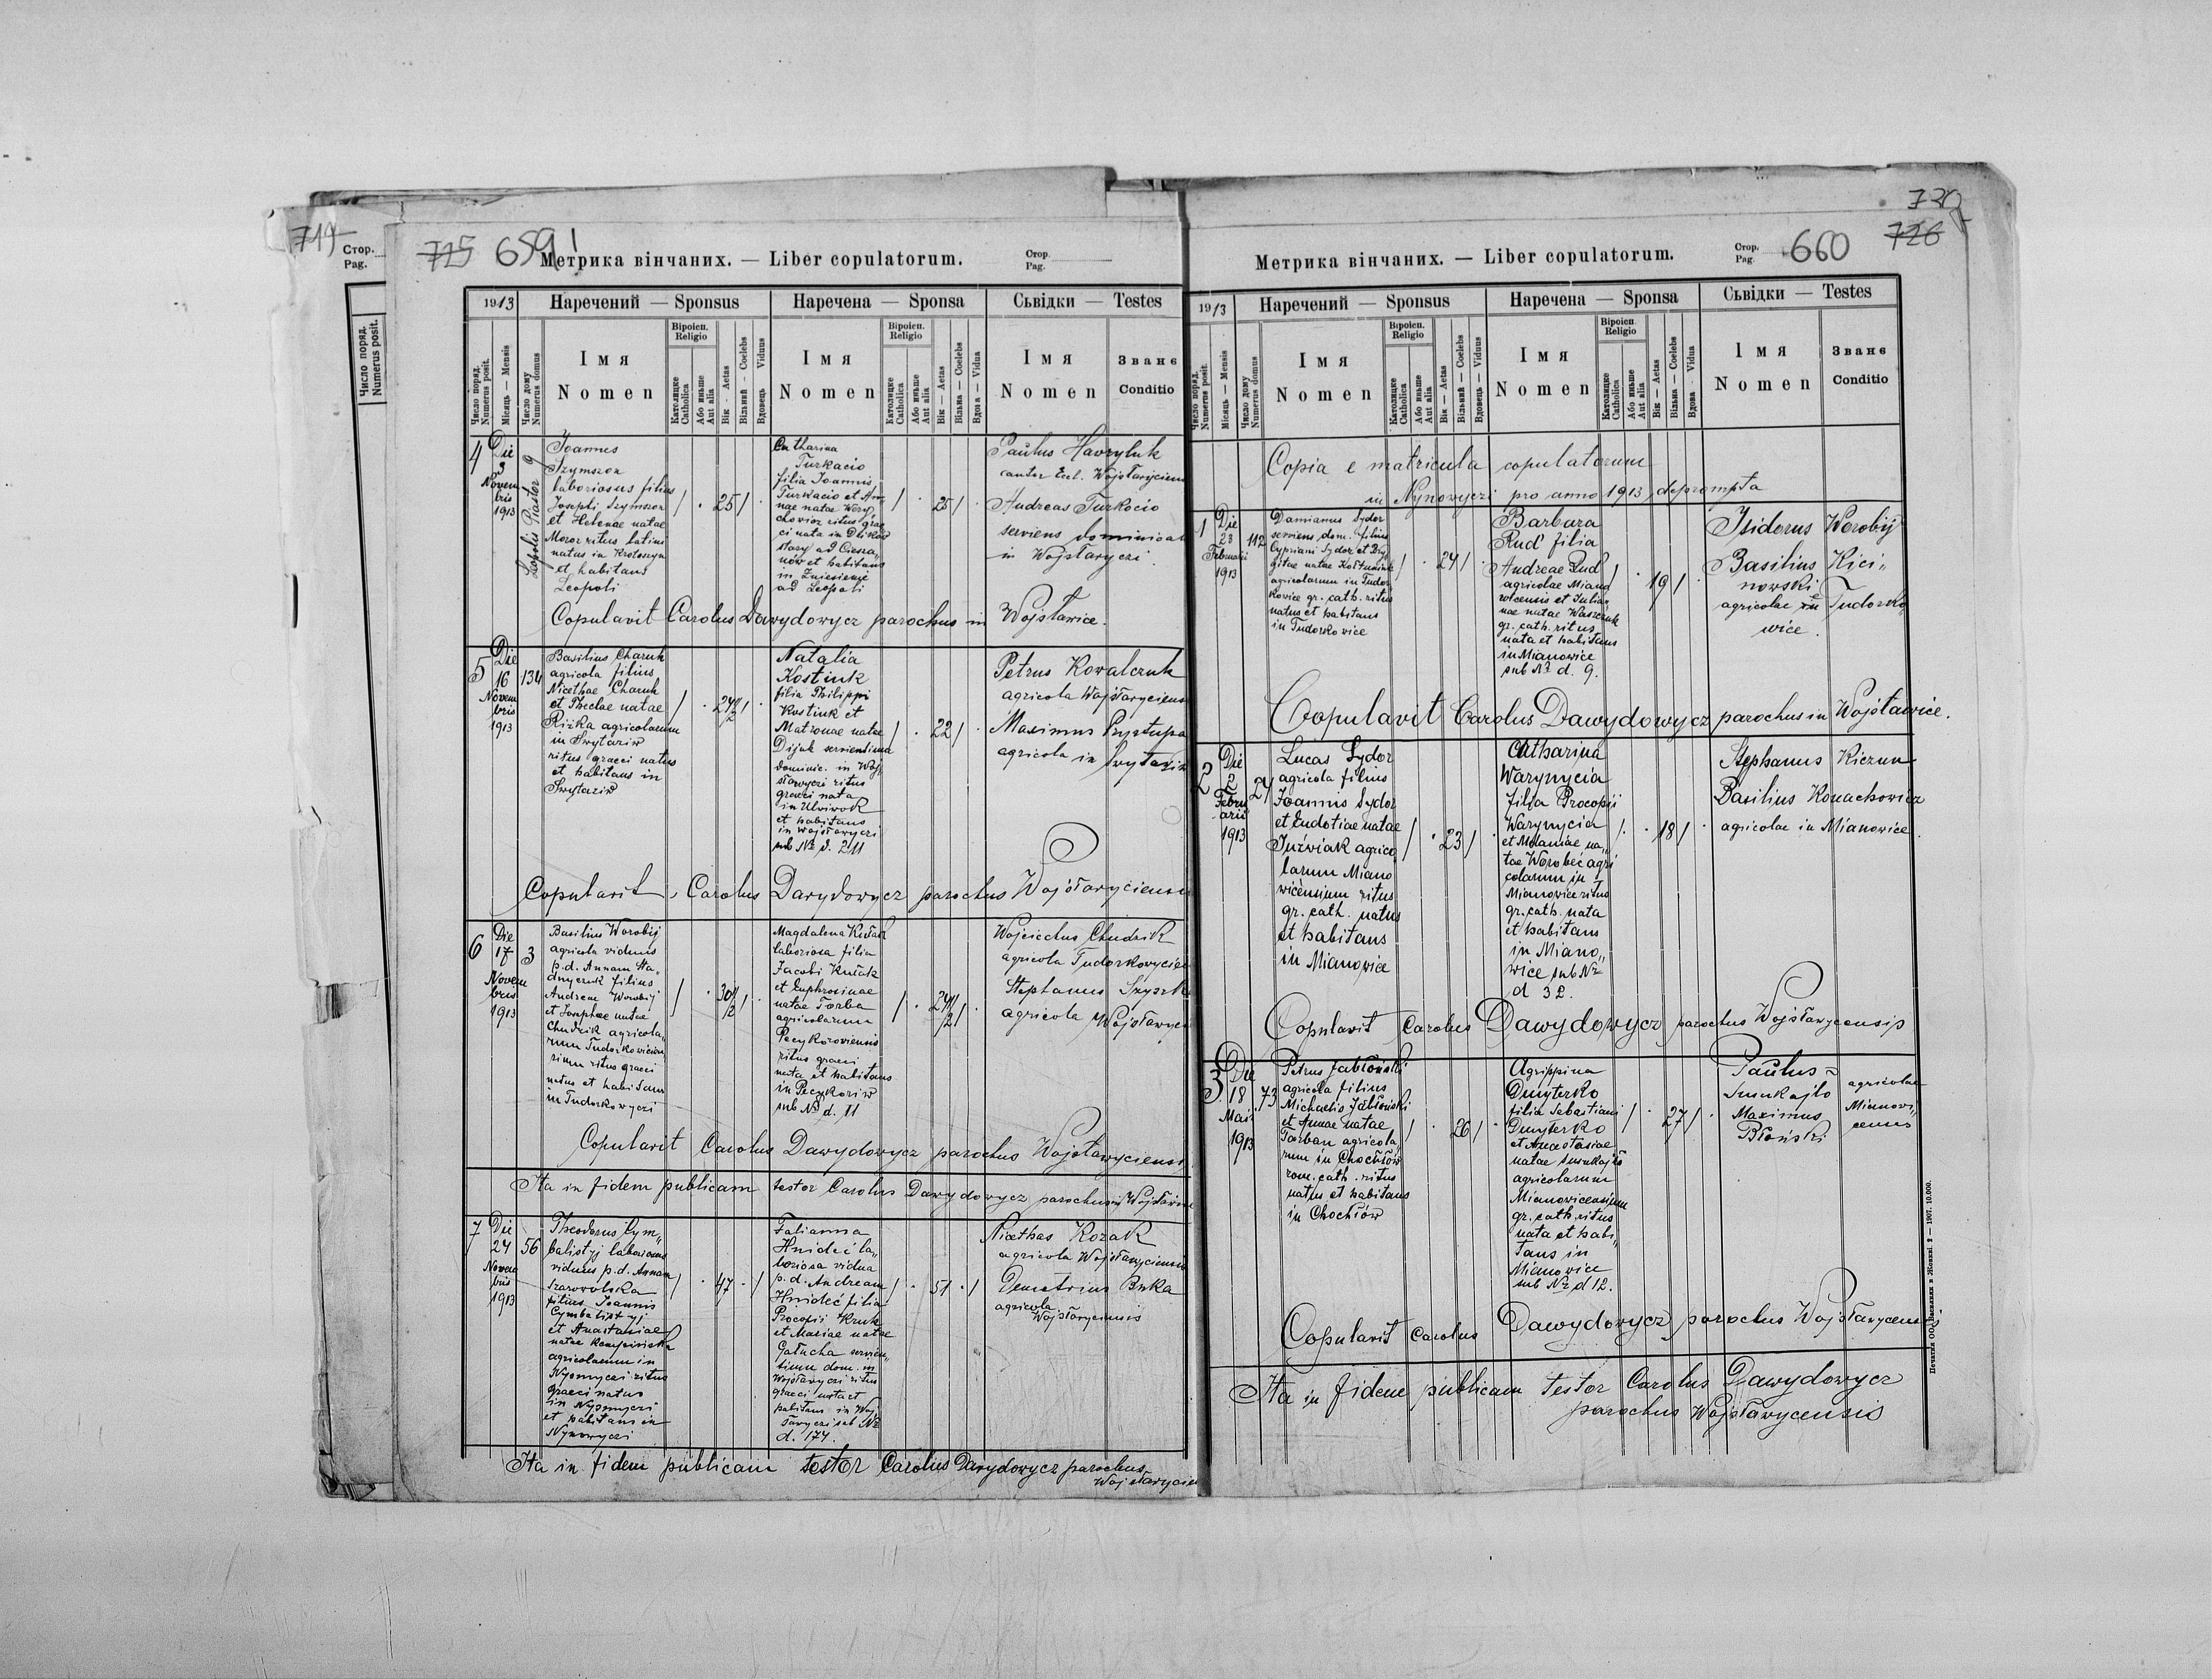 719
Стор.
Pag.
Число поряд.
Numerus posit.
715 659!
Метрика вінчаних. — Liber copulatorum.
Стор.
Pag.
1913 Наречений — Sponsus Наречена — Sponsa Сьвідки — Testes
Число поряд. Numerus posit.
Місяць — Mensis
Число дому Numerus domus
Імя Nomen
Віроісп. Religio
Католицке Catholica
Або иньше Aut alia
Вік - Aetas
Вільний - Coelebs
Вдовець Viduus
Імя Nomen
Віроісп. Religio
Католицке Catholica
Або иньше Aut alia
Вік — Aetas
Вільна — Coelebs
Вдова — Vidua
Імя Nomen
Званє Conditio
4 Die 3 Novembris 1913
Leopolis Piastor 9
Joannes
Szymszon
laboriosus filius
Josephi Szymszon
et Helenae natae
Moroz ritus latini
natus in Krotoszyn
et habitans
Leopoli
/ . 25 / .
Catharina
Turkacio
filia Joannis
Turkacio et An„
nae natae Wery„
chowior ritus grae„
ci nata in
stary ad Ciesza„
nów et habitans
in Zniesienje
ad Leopoli
/ . 25 / .
Paulus Havryluk
cantor Eccl. Wojsławyciens
Andreas Turkocio
serviens dominical
in Wojsławyczi.
Copulavit Carolus Dawydowycz parochus in Wojsławice.
5 Die 16 Novembris 1913
134
Basilius Charuk
agricola filius
Nicethae Charuk
et Theclae natae
Rizka agricolarum
in Swytaziw
ritus graeci natus
et habitans in
Swytaziw
/ . 24 1/2 / .
Natalia
Kostiuk
filia Philippi
Kostiuk et
Matronae natae
Dijak servientium
dominic. in Woj„
sławyczi ritus
graeci nata
in Ulwiwok
et habitans
in Wojsławyczi
sub Nr d. 211
/ . 22 / .
Petrus Kowalczuk
agricola Wojsławyciens
Maximus Prystupa
agricola in Swytaziw
Copulavit Carolus Dawydowycz parochus Wojsławyciensis
6 Die 17 Novembris 1913
3
Basilius Worobij
agricola viduus
p.d. Annam Ha„
dnyczuk filius
Andreae Worobij
et Josephae natae
Chudzik agricola„
rum Tudorkowicien„
sium ritus graeci
natus et habitans
in Tudorkowyczi
/ . 30 1/2 / .
Magdalena Kušak
laboriosa filia
Jacobi Kušak
et Euphrosinae
natae Torba
agricolarum
Pecykoroviensis
ritus graeci
nata et habitans
in Pecykoriw
sub Nr d. 11
/ . 24 1/2 / .
Wojciechus Chudzik
agricola Tudorkovycien
Stephanus Szyszk
agricola Wojsławyc
Copulavit Carolus Dawydowycz parochus Wojsławyciensis
Ita in fidem publicam testor Carolus Dawydowycz parochus in Wojsławice
7 Die 24 Novembris 1913
56
Theodorus Cym„
balistyj laboriosus
viduus p.d. Annam
Szarowolska
filius Joannis
Cymbalistyj
et Anastasiae
natae
agricolarum in
Nynowyczi ritus
graeci natus
in Nynowyczi
et habitans in
Nynowyczi
/ . 47 . /
Tatianna
Hnideć la„
boriosa vidua
p.d. Andream
Hnideć filia
Procopii Kruk
et Mariae natae
Gałucha servien„
tium dom. in
Wojsławyczi ritus
graeci nata et
habitans in Woj„
sławyczi sub Nr
d. 174.
/ . 51 . /
Nicethas Kozak
agricola Wojsławyciensis
Demetrius Buka
agricola
Wojsławyciensis
Ita in fidem publicam testor Carolus Dawydowycz parochus
Wojsławycien
730
726
Метрика вінчаних. — Liber copulatorum.
Стор.
Pag.
660
1913 Наречений — Sponsus Наречена — Sponsa Сьвідки — Testes
Число поряд. Numerus posit.
Місяць — Mensis
Число дому Numerus domus
Імя Nomen
Віроісп. Religio
Католицке Catholica
Або иньше Aut alia
Вік — Aetas
Вільний — Coelebs
Вдовець — Viduus
Імя Nomen
Віроісп. Religio
Католицке Catholica
Або иньше Aut alia
Вік — Aetas
Вільна — Coelebs
Вдова - Vidua
Імя Nomen
Званє Conditio
Copia e matricula copulatorum
in Nynowyczi pro anno 1913 deprompta
1 Die 23 Februarii 1913
112
Damianus Sydor
serviens dom. filius
Cypriani Sydor et Bry„
gitae natae Kołtuniuk
agricolarum in Tudor„
kowice gr. cath. ritus
natus et habitans
in Tudorkowice
/ . 24 / .
Barbara
Rud' filia
Andreae Rud'
agricolae Miano„
wicensis et Julia„
nae natae Waszczuk
gr. cath. ritus
nata et habitans
in Mianowice
sub Nr d. 9.
/ . 19 / .
Isidorus Worobij
Basilius Kici„
nowski
agricolae in Tudorko„
wice.
Copulavit Carolus Dawydowycz parochus in Wojsławice.
2 Die 2 Februarii 1913
27
Lucas Sydor
agricola filius
Joannis Sydor
et Eudotiae natae
Juźwiak agrico„
larum Miano„
wicensium ritus
gr. cath. natus
et habitans
in Mianowice
/ . 23 / .
Catharina
Warynycia
filia Procopii
Warynycia
et Melaniae na„
tae Worobeć agri„
colarum in
Mianowice ritus
gr. cath. nata
et habitans
in Miano„
wice sub Nr
d 32.
/ . 18 / .
Stephanus Kiczun
Basilius Konachowicz
agricolae in Mianowice.
Copulavit Carolus Dawydowycz parochus Wojsławycensis
3 Die 18 Maii 1913
73
Petrus Jabłoński
agricola filius
Michaelis Jabłoński
et Annae natae
Tarban agricola„
rum in Chochłów
rom. cath. ritus
natus et habitans
in Chochłów
/ . 26 / .
Agrippina
Dmyterko
filia Sebastiani
Dmyterko
et Anastasiae
natae Susukajło
agricolarum
Mianowicensium
gr. cath. ritus
nata et habi„
tans in
Mianowice
sub Nr d 12.
/ . 27 / .
Paulus
Susukajło
Maximus
Błoński
agricolae
Mianowi„
censes
Copulavit Carolus Dawydowycz parochus Wojsławycensis
Ita in fidem publicam testor Carolus Dawydowycz
parochus Wojsławycensis
Печатня ОО. Василиян в Жовкві. 2 — 1907. 10.000.